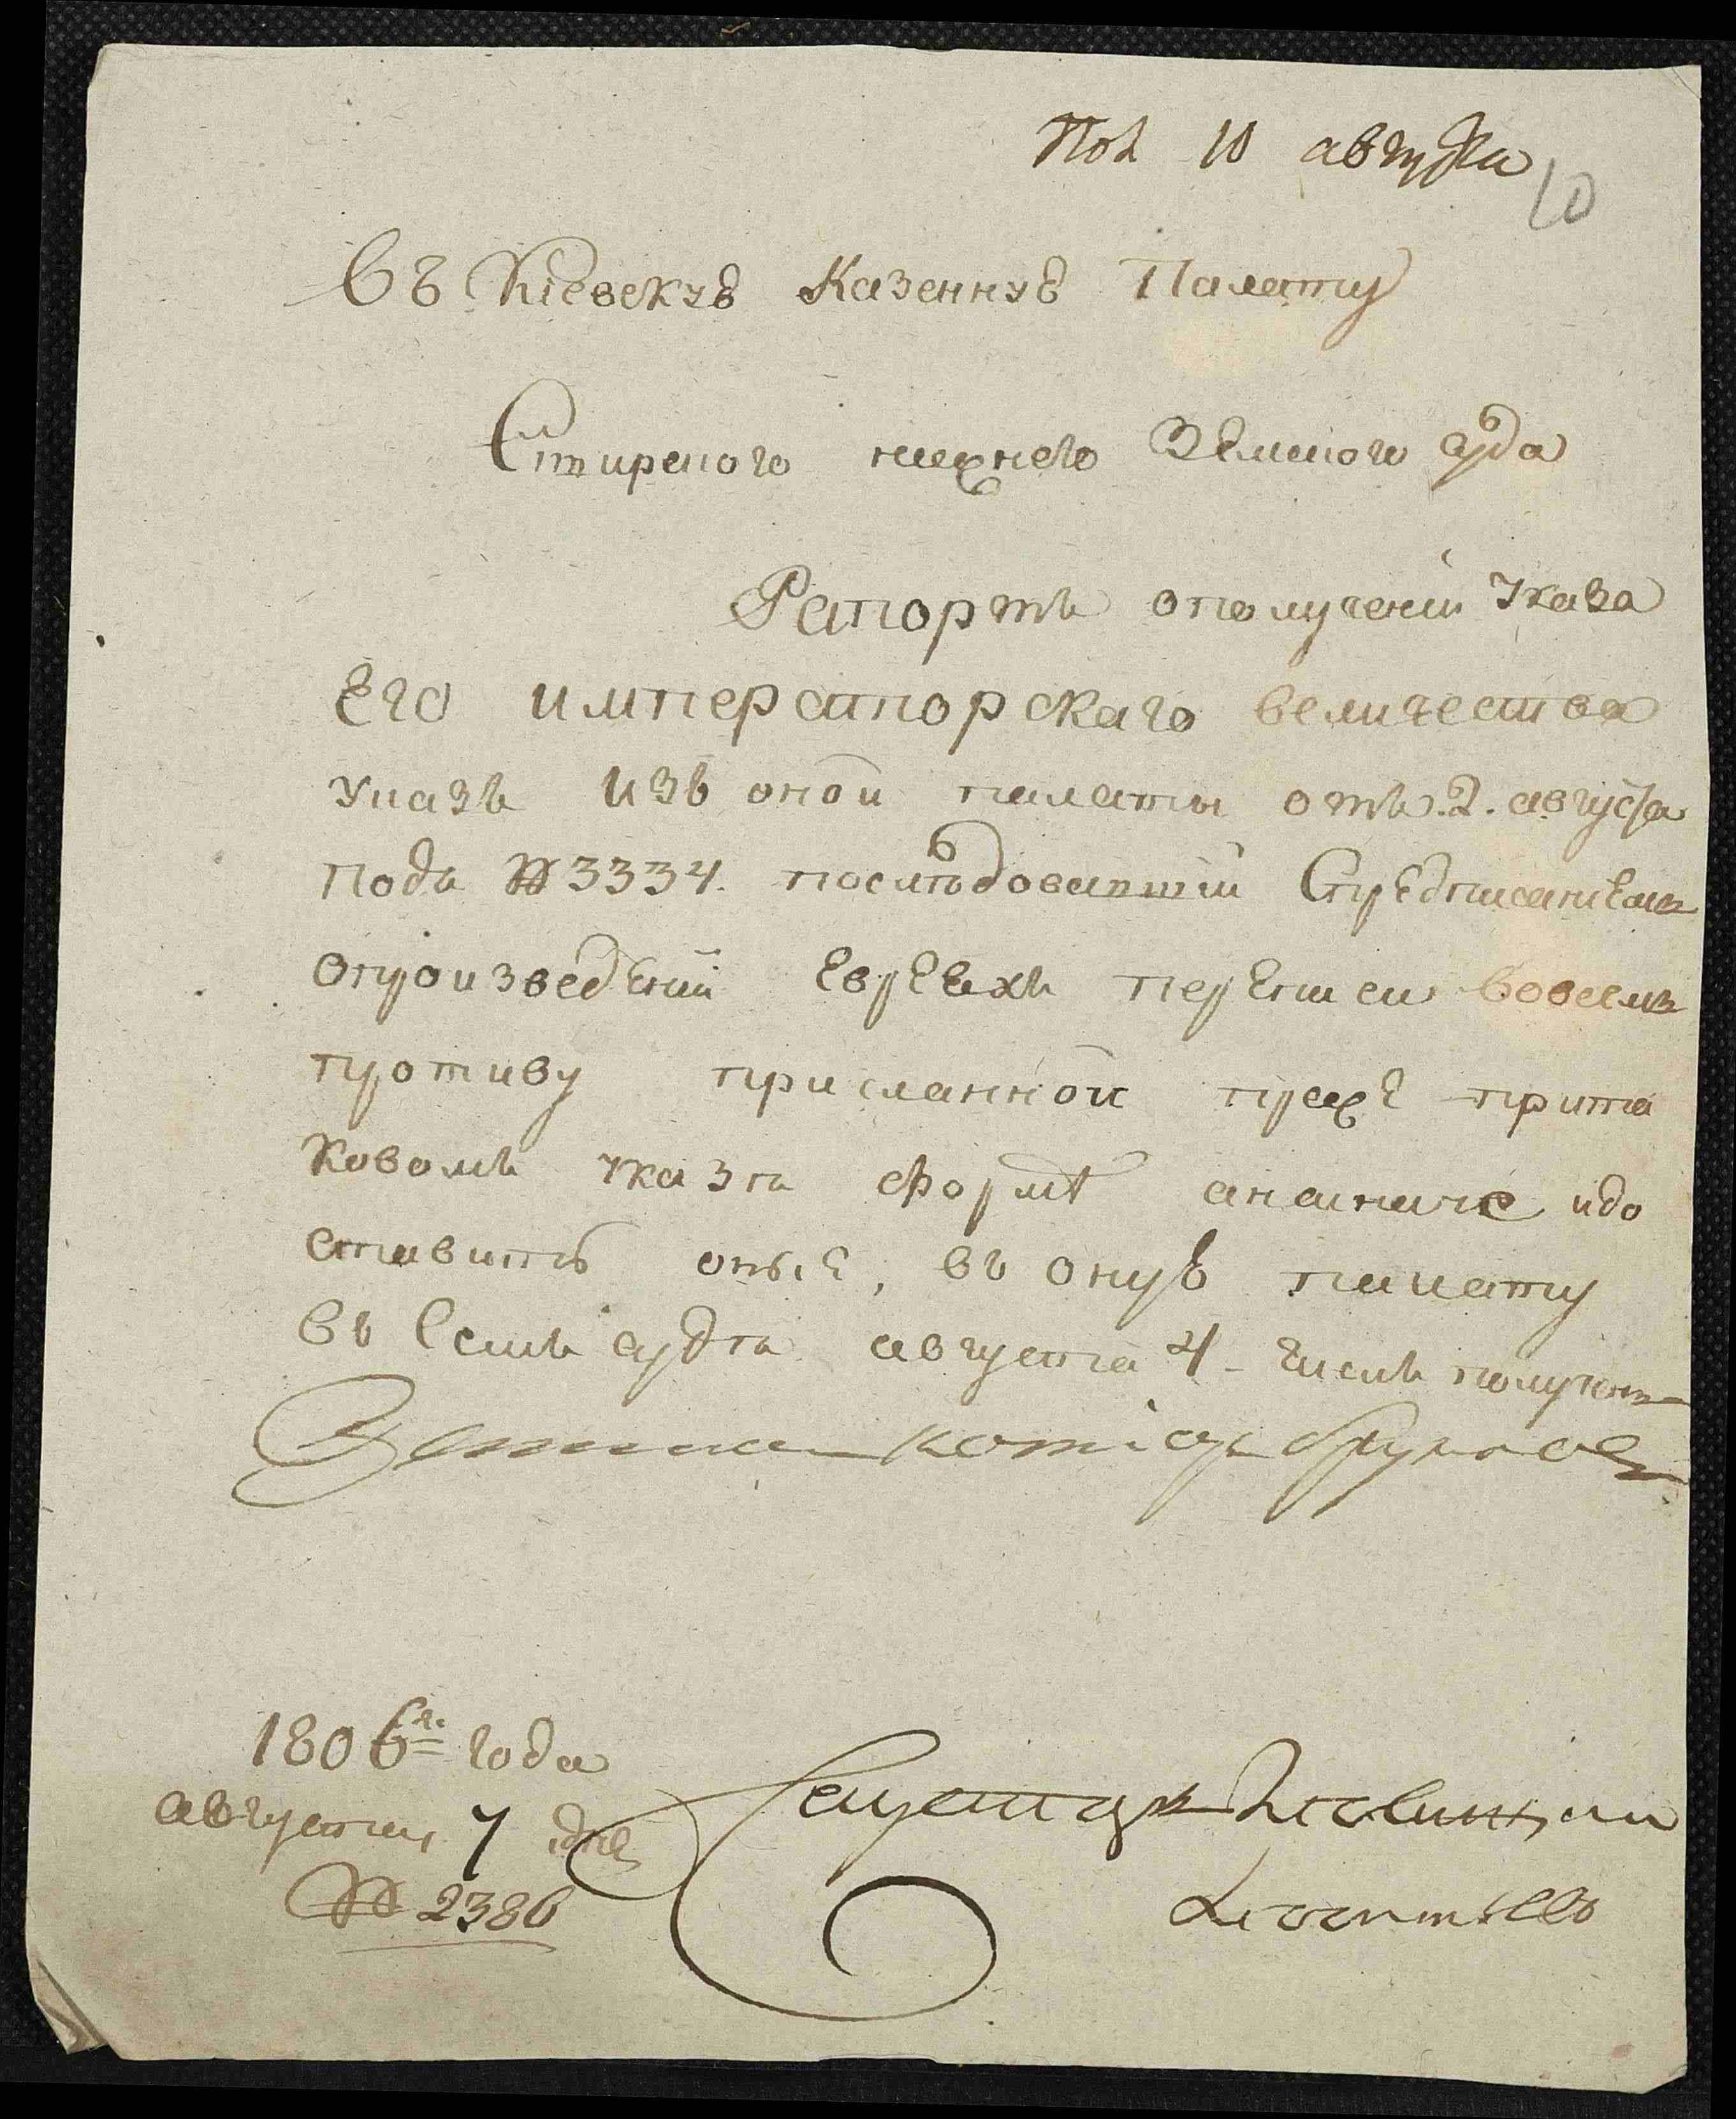 Пол 10 августа
10
Въ Кіевскую Казенную Палату
нижнего Земского суда
Рапортъ ополученіи Указа
Его императорскаго величества
указъ Изъ оной палаты отъ 2. августа
подъ № 3334. последовавшій Спредписаніемъ
опроизведеніи Евреехъ переписи вовсемъ
противу присланной преже прита
ковомъ указѣ формѣ идо
ставить оные, въ оную палату
въ Семъ судѣ августа 4 числа полученъ
1806го года
августа 7 дня
№ 2386